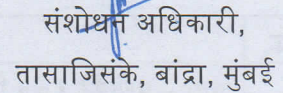 संशोधन अधिकारी,
तासाजिसंके, बांद्रा, मुंबई